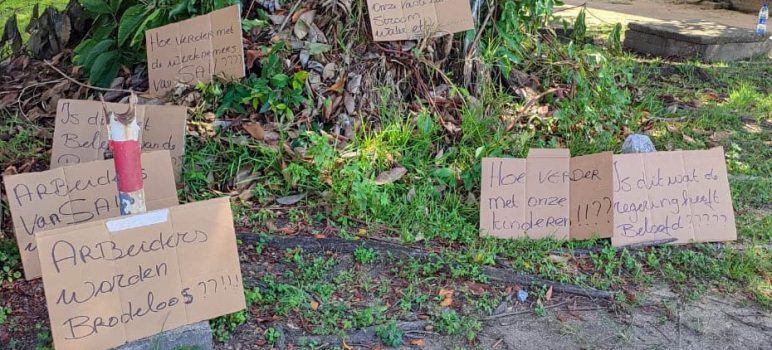 Hoe verder met
de werknemers
van SAI ???
onze vaste
Stroom
water etc
Is dit
Arbeiders
van SAI
Arbeiders
worden
Brodeloos ??!!!
Hoe verder
met onze
kinderen !!??
Is dit wat de
regering heeft
Beloofd ?????